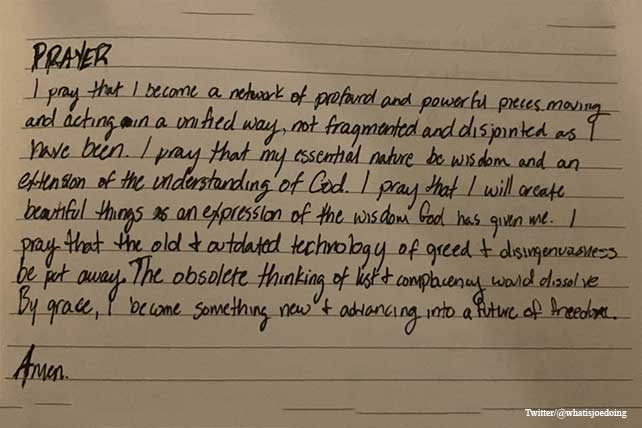 PRAYER
I pray that I become a network of profound and powerful pieces moving
and acting in a unified way, not fragmented and disjointed as I
have been. I pray that my essential nature be wisdom and an
extension of the understanding of God. I pray that I will create
beautiful things as an expression of the wisdom God has given me. I
pray that the old & outdated technology of greed & disingenuousness
be put away. The obsolete thinking of lust & complacency would dissolve
By grace, I become something new & advancing into a future of freedom.
Amen.
Twitter/@whatisjoedoing